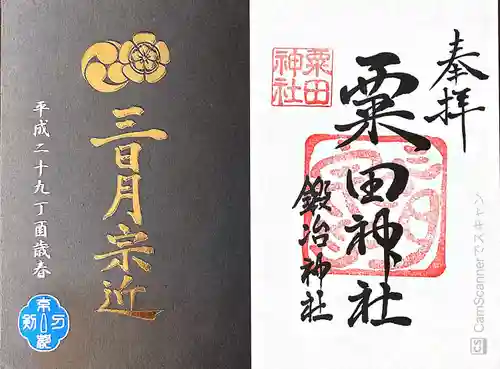 三日月宗近
平成二十九丁酉歳春
奉拝
粟田神社
粟田神社
鍛冶神社
CS CamScannerでスキャン